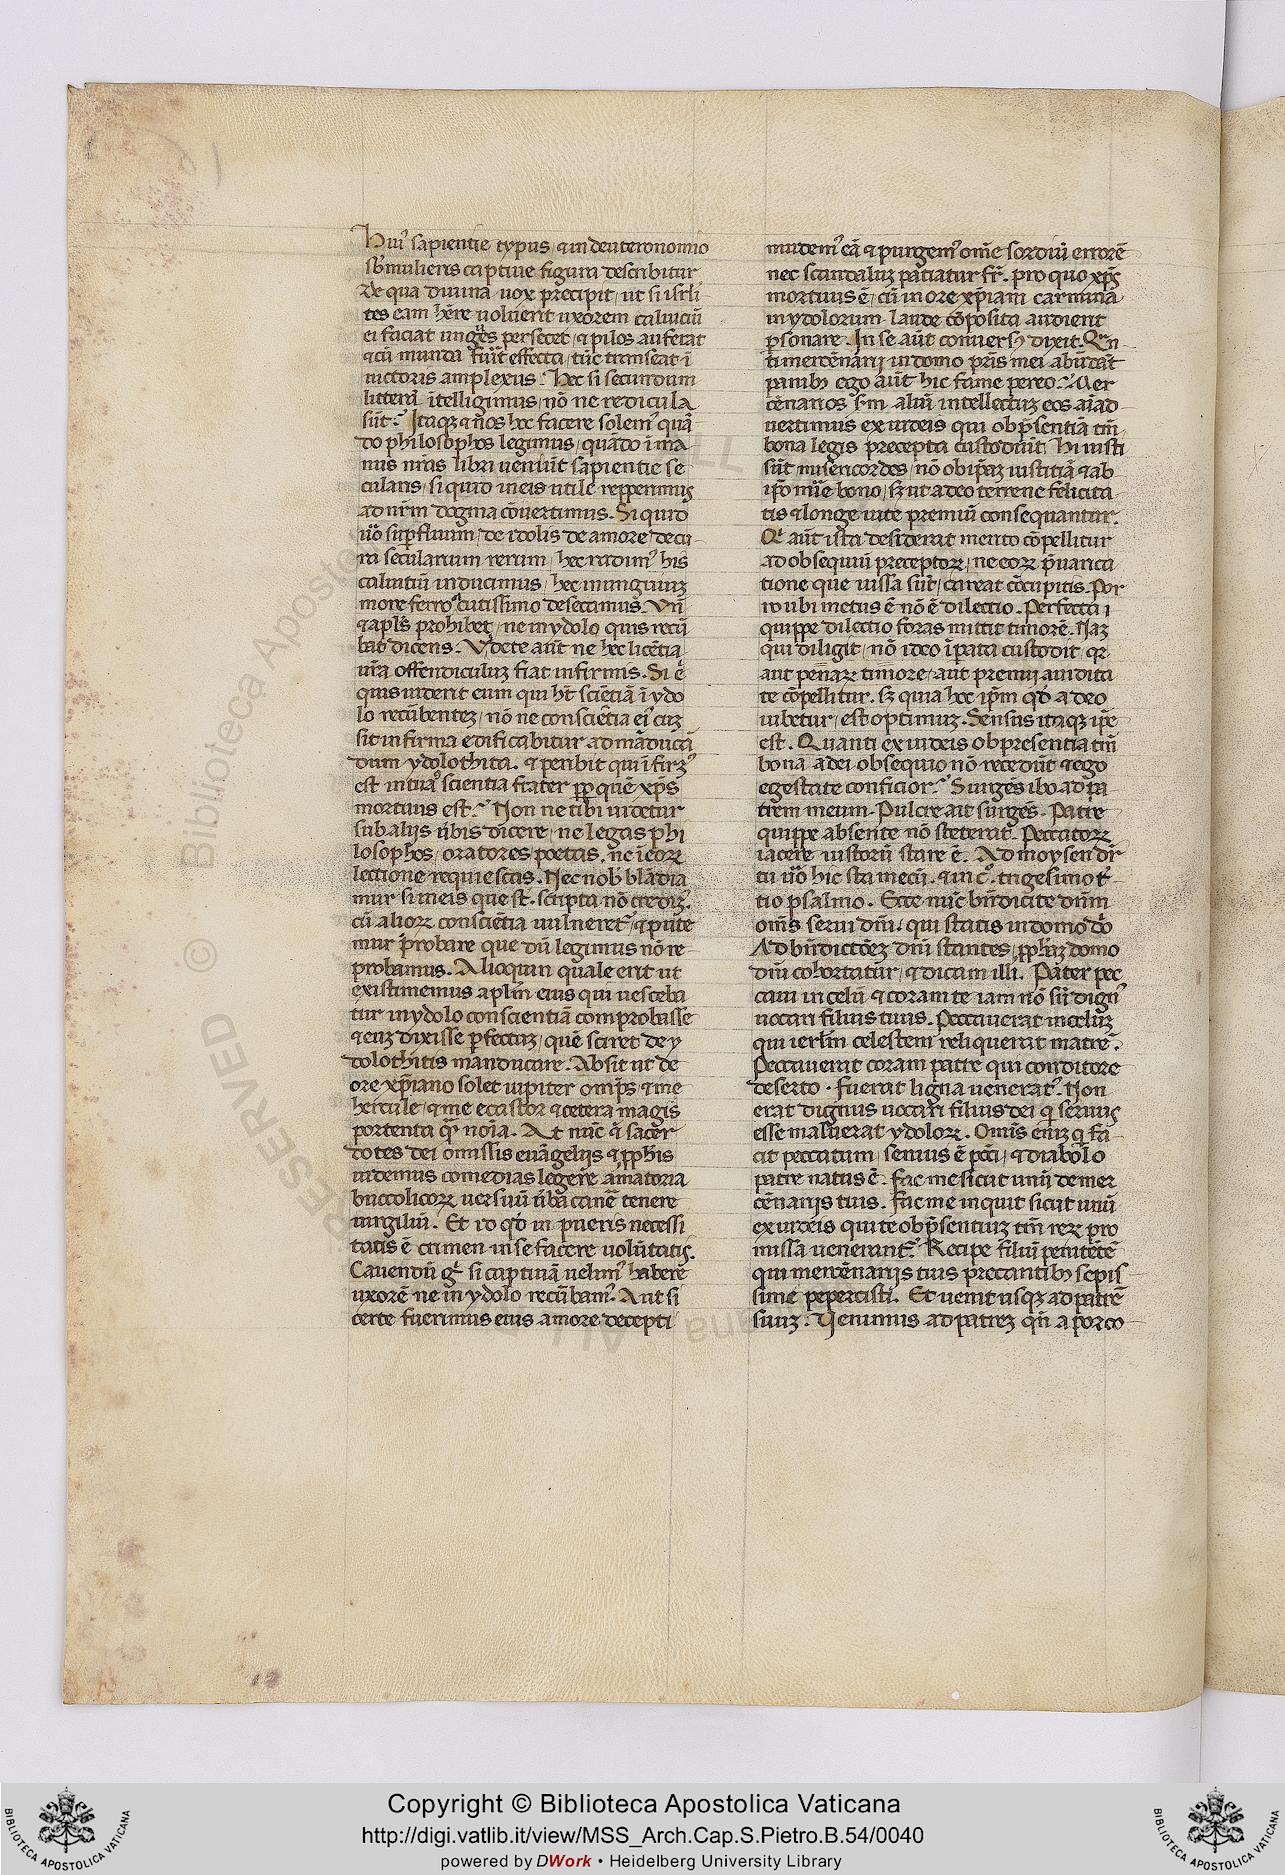 Huiꝰ sapientie typus / ⁊ in deuteronomio
sb mulieris captiue figura describitur
De qua diuina uox precipit / ut si isrli
tes eam hēre uoluerit uxorem caluiciū
ei faciat ungues persecet / ⁊ pilos auferat
⁊ cū munda fuĩt effecta / tūc transeat ĩ
uictoris amplexus. Hec si secundum
litterā ĩtelligimus / nō ne redicula
sūt? Itaqꝫ ⁊ nos hoc facere solemꝰ quā
do philosophos legimus / quādo ĩ ma
nus nr̄as libri ueniūt sapientie se
cularis / si quid in eis utile repperimus
ad nr̄m dogma cōuertimus. Si quid
uo suꝑfluum / de idolis de amore de cu
ra secularium rerum / hec radimꝰ his
caluitiū inducimus / hec in unguiuꝫ
more ferro acutissimo desecamus. Vn̄
⁊ apls prohibet / ne in ydolo quis recū
bat dicens. Videte aūt ne hec licētia
ur̄a offendiculuꝫ fiat infirmis. Si .n.
quis uiderit eum qui ht sciētiā ĩ ydo
lo recūbentez / nō ne conscientia eiꝰ cuꝫ
sit infirma edificabitur ad māducā
dum ydolothita. ⁊ peribit qui ĩfirꝰ
est in tua scientia frater ꝓp quē xp̄s
mortuus est? Non ne tibi uidetur
sub aliis ũbis dicere / ne legas phi
losophos / oratores poetas. ne ĩ eoꝝ
lectione requiescas. Nec nobꝰ blādia
mur si in eis que st̄ scripta nō credimꝰ.
cū alioꝝ conscientia uulneretꝰ / ⁊ pute
mur ꝓbare que dū legimus nō re
probamus. Alioquin quale erit ut
existimemus aplm eius qui uesceba
tur in ydolo conscientiā comprobasse
⁊ euꝫ dixisse ꝑfectuꝫ / quē sciret de y
dolothitis manducare. Absit ut de
ore xp̄iano solet iupiter omīps / ⁊ me
hercule / ⁊ me ecastor ⁊ cetera magis
portenta qꝫ noīa. At nūc ⁊ sacer
dotes dei omissis euāgeliis ⁊ ꝓphis
uidemus comedias legere amatoria
buccolicoꝝ uersuū ũba canē tenere
uirgiliū. Et id qd in pueris necessi
tatis ē crimen in se facere uolūtatis.
Cauendū g̊ si captiuā uelimꝰ habere
uxorē ne in ydolo recūbamꝰ. Aut si
certe fuerimus eius amore decepti
mudemꝰ eā ⁊ purgemꝰ om̄e sordiū errorē
nec scandaluꝫ patiatur fr̄. pro quo xp̄s
mortuus ē / cū in ore xp̄iani carmina
in ydolorum laude cōposita audierit
ꝑsonare. In se aūt conuersꝰ dixit. Quā
ti mercenarii in domo pr̄is mei abūdāt
panibꝰ ego aūt hic fame pereo? Mer
cēnarios s̄m aliū intellectuꝫ eos aīad
uertimus ex iudeis qui ob p̄sentiā tm̄
bona legis precepta custodiūt. Hi iusti
sūt misericordes / nō ob ip̄aꝫ iustitiā ⁊ ab
ip̄o mĩe bono / sꝫ ut a deo terrene felicita
tis ⁊ longe uite premiū consequantur.
Qͥ aūt ista desiderat merito cōpellitur
ad obsequiū preceptoꝝ / ne eoꝝ p̄uarica
tione que iussa sūt / careat cōcupitis. Por
ro ubi metus ē nō ē dilectio. Perfecta
quippe dilectio foras mittit timorē. Naꝫ
qui diligit / nō ideo ĩpata custodit qͥ
aut penaꝝ timore / aut premii auidita
te cōpellitur. sꝫ quia hoc ip̄m qd a deo
iubetur / est optimuꝫ. Sensus itaqꝫ ipē
est. Quanti ex iudeis ob presentia tm̄
bona a dei obsequio nō recedūt ⁊ ego
egestate conficior? Surgēs ibo ad pa
trem meum. Pulcre ait surgēs. Patre
quippe absente nō steterat. Peccatoꝝ
iacere iustorū stare ē. Ad moysen dr̄
tu uo hic sta mecū. ⁊ in cͦ. trigesimo t̄
tio psalmo. Ecce nūc bn̄dicite dnm
omēs serui dnī. qui statis in domo dnī
Ad bn̄dictōez dnī stantes / ꝓphaꝫ domo
dnī cohortatur / ⁊ dicam illi. Pater pec
caui in celū ⁊ coram te iam nō sū dignꝰ
uocari filius tuus. Peccauerat in celuꝫ
qui ierlm celestem reliquerat matrē.
Peccauerat coram patre qui conditore
deserto. fuerat ligna ueneratꝰ. Non
erat dignus uocari filius dei q̇ seruus
esse maluerat ydoloꝝ. Omīs eniꝫ q̇ fa
cit peccatum / seruus ē pcci / ⁊ diabolo
patre natus ē. Fac me sicut unū de mer
cēnariis tuis. Fac me inquit sicut unū
ex iudeis qui te ob p̄sentiuꝫ tm̄ reꝝ pro
missa uenerant? Recipe filiū penitētē
qui mercēnariis tuis precantibꝰ sepis
sime pepercisti. Et uenit usqꝫ ad patrē
suuꝫ. Uenimus ad patreꝫ qn̄ a porco
Copyright © Biblioteca Apostolica Vaticana
http://digi.vatlib.it/view/MSS_Arch.Cap.S.Pietro.B.54/0040
powered by DWork • Heidelberg University Library